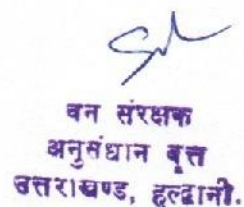 वन संरक्षक
अनुसंधान वृत्त
उत्तराखण्ड, हल्द्वानी.